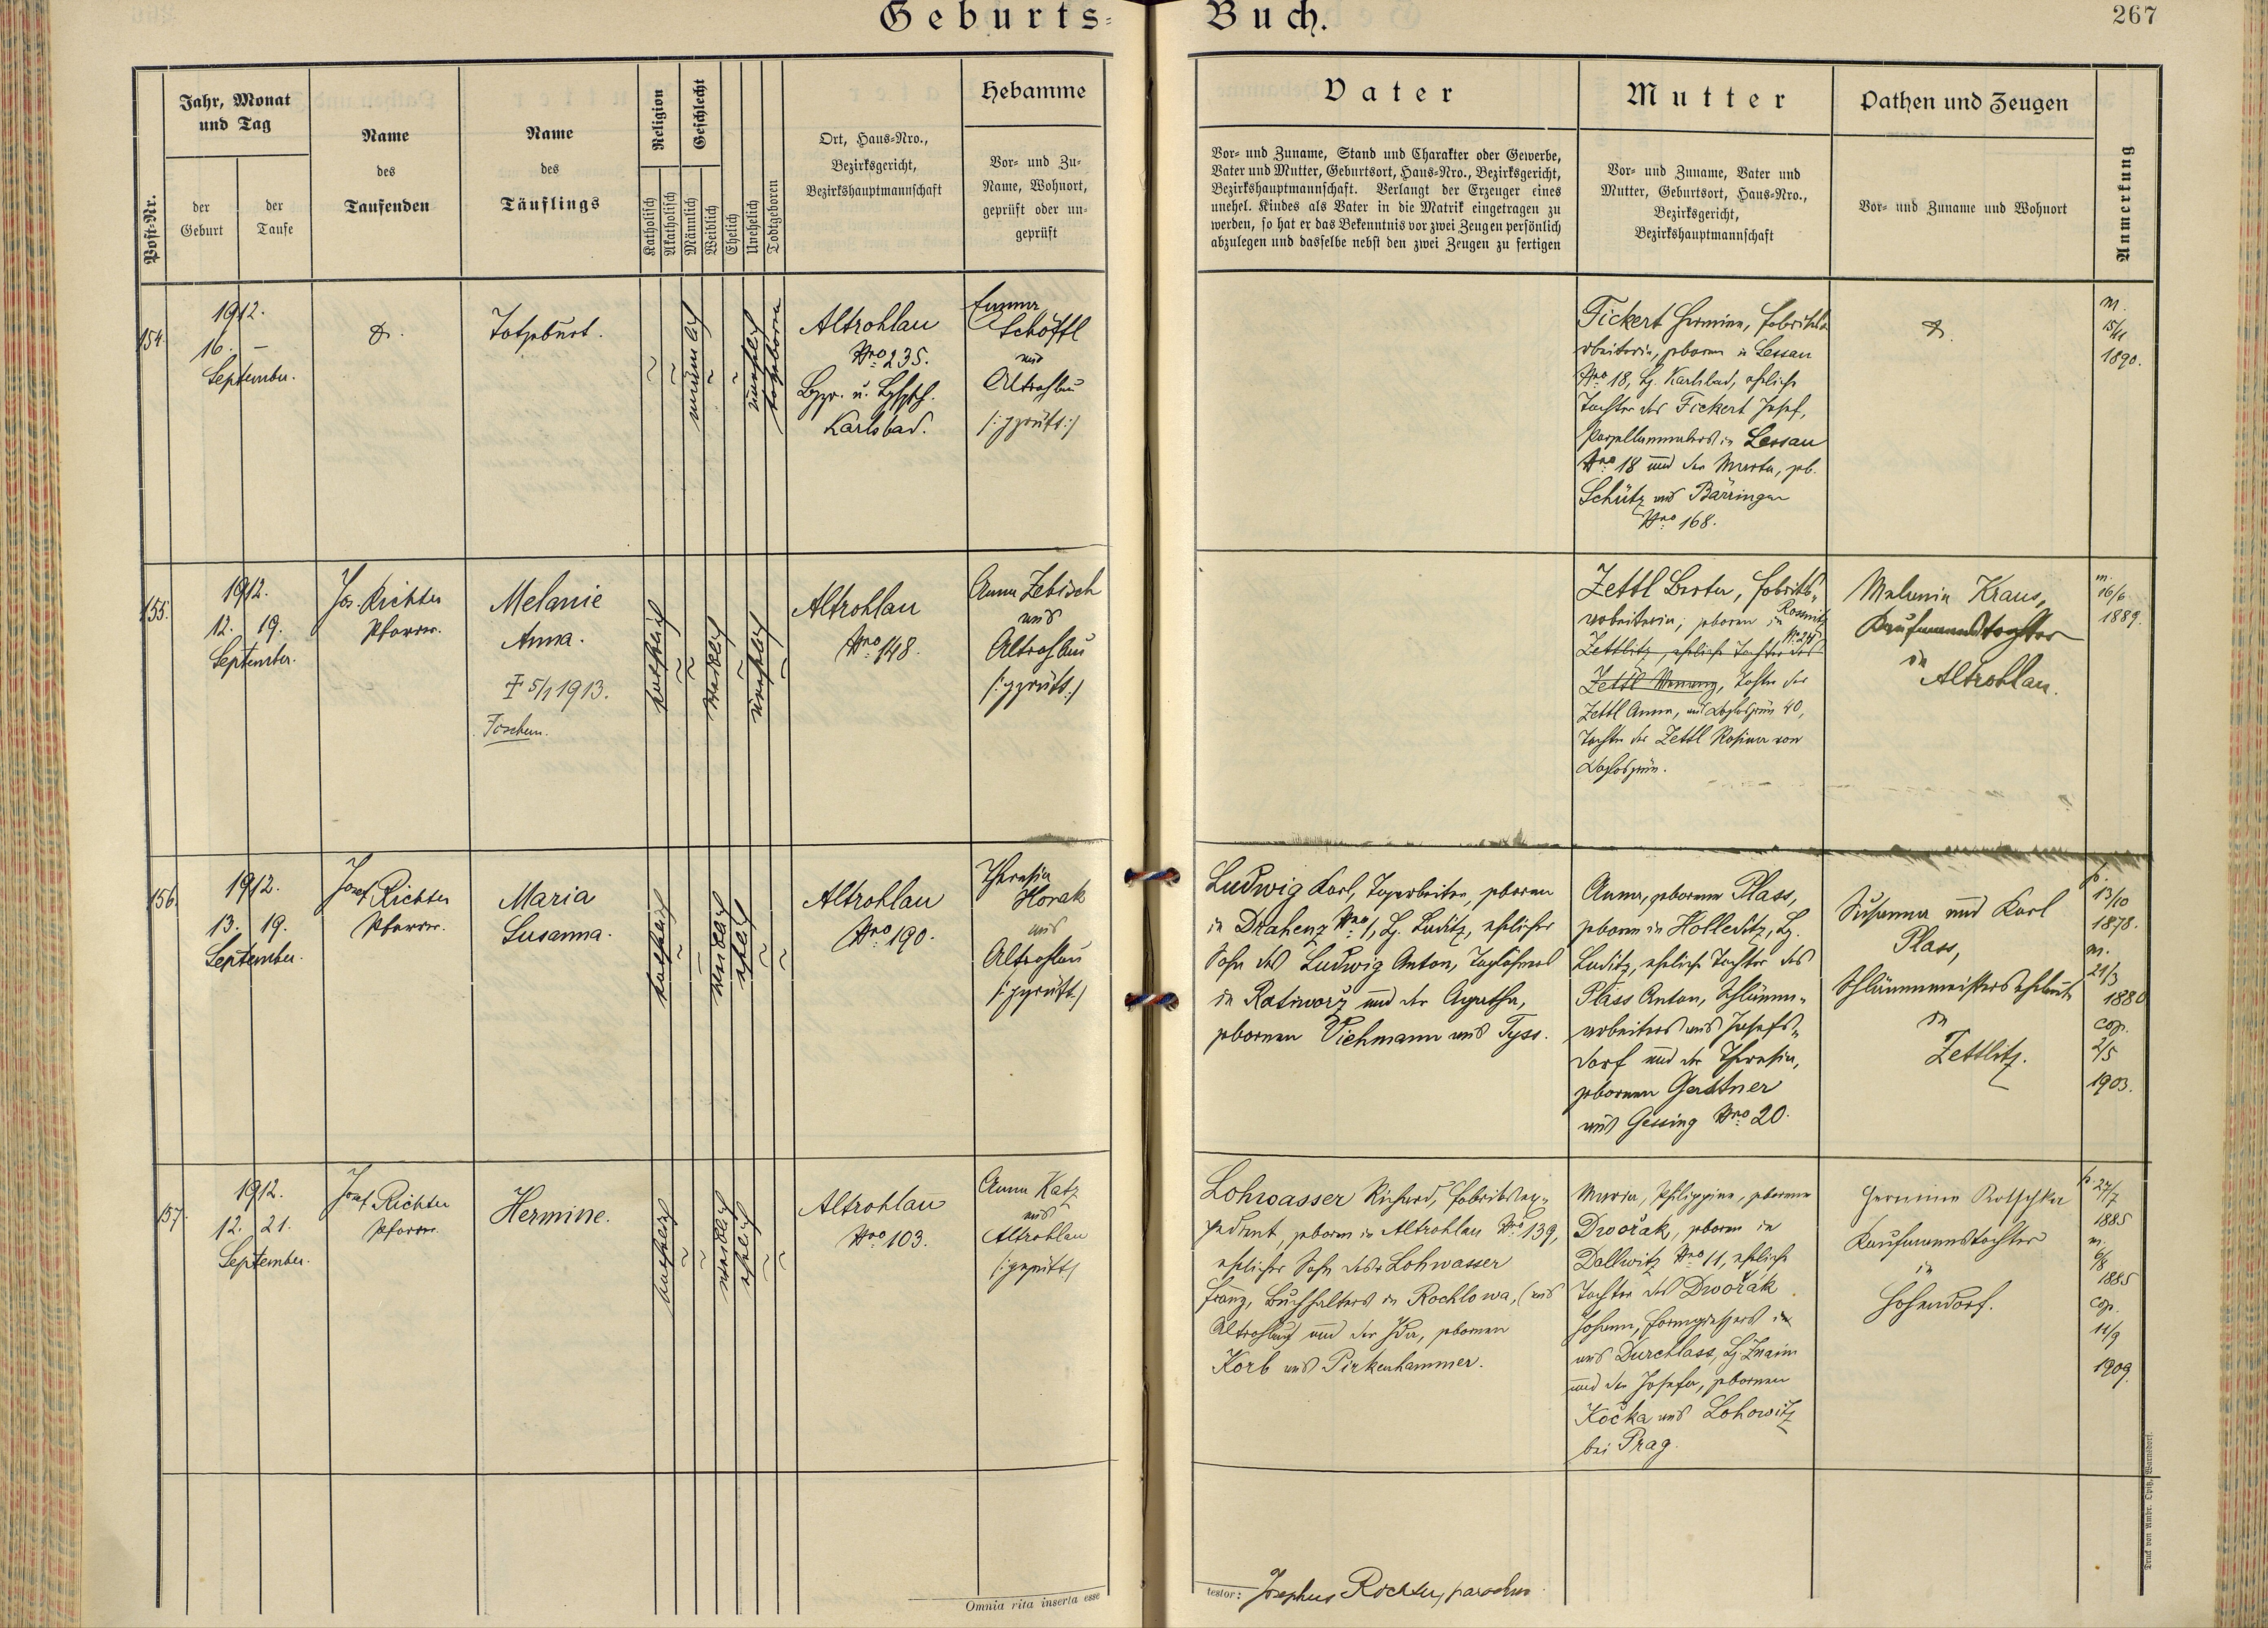 Geburts-
Buch.
267
Post-Nr.
Jahr, Monat
und Tag
der
Geburt
der
Taufe
Name
des
Taufenden
Name
des
Täuflings
Religion
Katholisch
Akatholisch
Geschlecht
Männlich
Weiblich
Ehelich
Unehelich
Todtgeboren
Ort, Haus-Nro.,
Bezirksgericht,
Bezirkshauptmannschaft
Hebamme
Vor- und Zu-
Name, Wohnort,
geprüft oder un-
geprüft
Vater
Vor- und Zuname, Stand und Charakter oder Gewerbe,
Vater und Mutter, Geburtsort, Haus-Nro., Bezirksgericht,
Bezirkshauptmannschaft. Verlangt der Erzeuger eines
unehel. Kindes als Vater in die Matrik eingetragen zu
werden, so hat er das Bekenntnis vor zwei Zeugen persönlich
abzulegen und dasselbe nebst den zwei Zeugen zu fertigen
Mutter
Vor- und Zuname, Vater und
Mutter, Geburtsort, Haus-Nro.,
Bezirksgericht,
Bezirkshauptmannschaft
Pathen und Zeugen
Vor- und Zuname und Wohnort
Anmerkung
154.
1912.
16. –
September.
Totgeburt.
männlich
unehelich
totgeboren
Altrohlau
Nro 235.
Karlsbad.
Emma
Schöffl
aus
Altrohlau
/:geprüft:/
Fickert Hermine, Fabriks-
arbeiterin, geboren in Lessau
Nro 18, Bz. Karlsbad, eheliche
Tochter des Fickert Josef,
Porzellanmalers in Lessau
Nro 18 und der Marta, geb.
Schütz aus Bärringen
Nro 168.
m.
15/11
1890.
155.
1912.
12. 19.
September.
Jos. Richter
Pfarrer.
Melanie
Anna.
† 5/1 1913.
katholisch
weiblich
unehelich
Altrohlau
Nro 148.
Anna Zebisch
aus
Altrohlau
/:geprüft:/
Zettl Berta, Fabriks-
arbeiterin, geboren in
Zettlitz, eheliche Tochter des
Zettl, Tochter der
Zettl Anna, aus 40,
Tochter der Zettl Rosina von
Melanie Kraus,
Kaufmannstochter
in
Altrohlau.
m.
16/6
1889.
156.
1912.
13. 19.
September.
Josef Richter
Pfarrer.
Maria
Susanna.
katholisch
weiblich
ehelich
Altrohlau
Nro 190.
Theresia
Horak
aus
Altrohlau
/:geprüft:/
Ludwig Karl, Tagarbeiter, geboren
in Drahenz Nro 1, Bz. Luditz, ehelicher
Sohn des Ludwig Anton, Taglöhners
in Ratiworz und der Agatha,
gebornen Viehmann aus Tyss.
Anna, geborene Plass,
geboren in Holleditz, Bz.
Luditz, eheliche Tochter des
Plass Anton, Schlämm-
arbeiters aus Josefs-
dorf und der Theresia,
gebornen Gattner
aus Gessing Nro 20.
Susanna und Karl
Plass,
Schlämmmeisters Eheleute
in
Zettlitz.
p.
13/10
1878.
m.
21/3
1880
cop.
2/5
1903.
157.
1912.
12. 21.
September.
Josef Richter
Pfarrer.
Hermine.
katholisch
weiblich
ehelich
Altrohlau
Nro 103.
Anna Katz
aus
Altrohlau
/:geprüft/
Lohwasser Richard, Fabriksex-
pedient, geboren in Altrohlau Nro 139,
ehelicher Sohn des Lohwasser
Franz, Buchhalters in Rochlowa, (aus
Altrohlau) und der Ida, gebornen
Korb aus Pirkenhammer.
Maria, Philippine, geborene
Dwořak, geboren in
Dallwitz Nro 11, eheliche
Tochter des Dwořák
Johann, Formgiessers in
aus Durchlass, Bz. Znaim
und der Josefa, gebornen
Kočka aus Lohowitz
bei Prag.
Hermine Rotschka
Kaufmannstochter
in
Hohendorf.
p. 27/7
1885
m.
6/8
1885
cop.
11/9
1909.
Omnia rita inserta esse
testor: Josephus Richter, parochus
Druck von Ambr. Opitz, Warnsdorf.